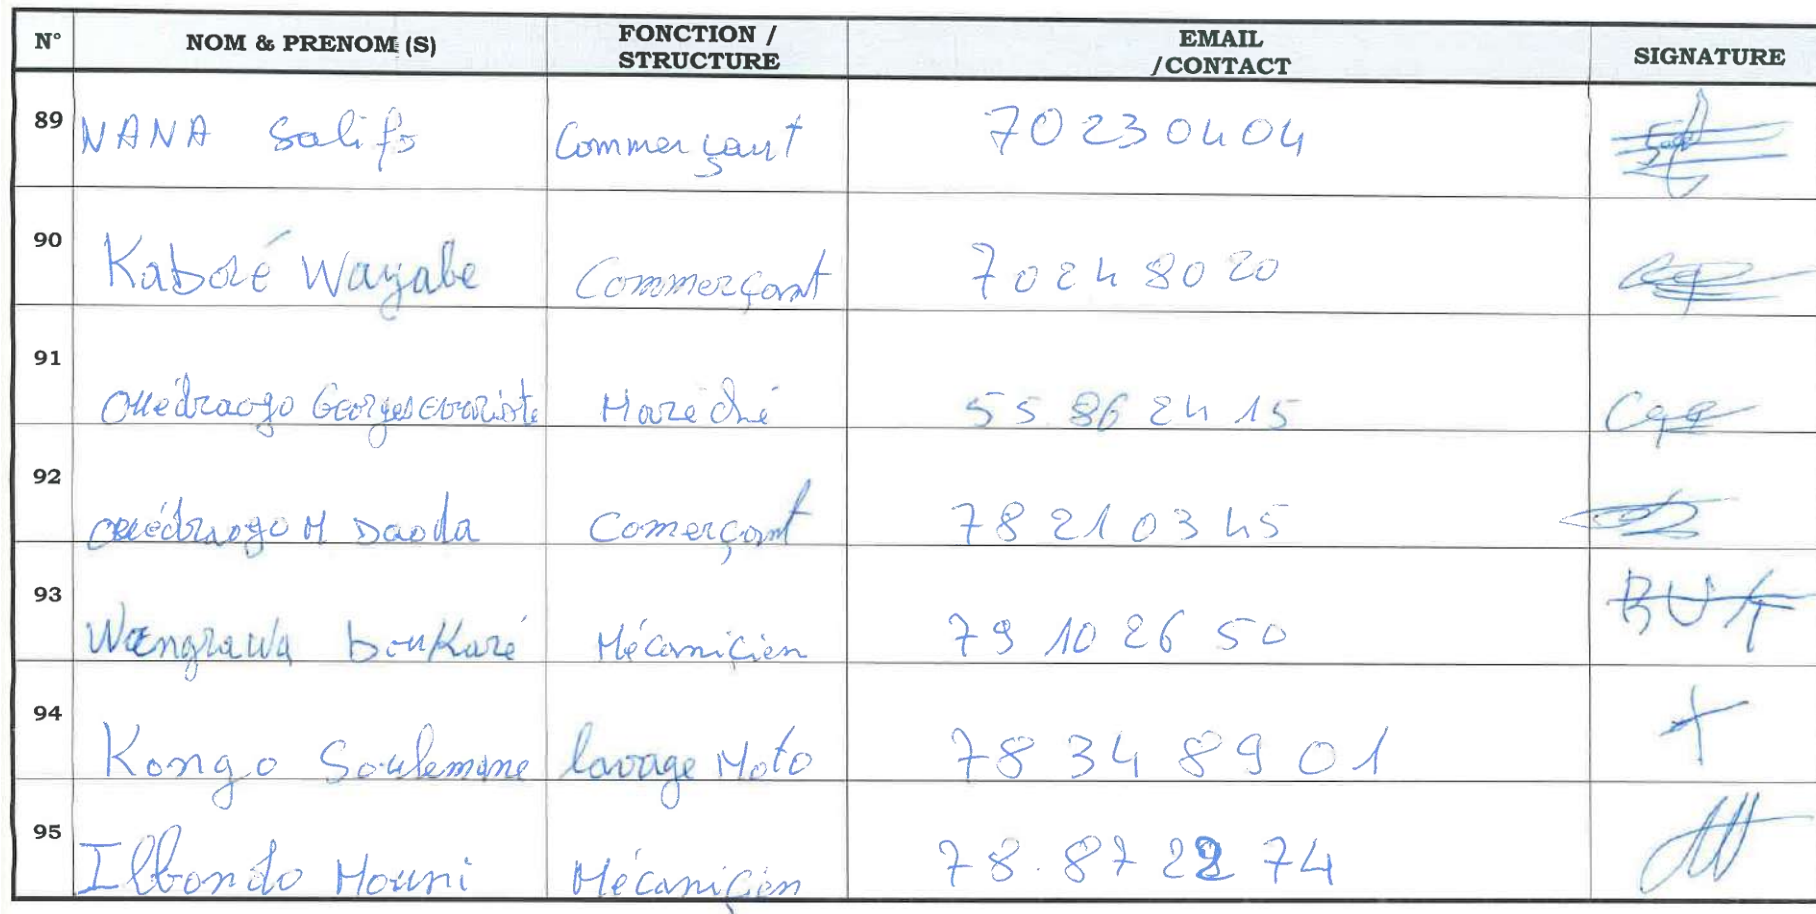 N° NOM & PRENOM (S) FONCTION / STRUCTURE EMAIL /CONTACT SIGNATURE
89 NANA Salifo Commerçant 70 23 04 04
90 Kaboré Wayabe Commerçant 70 24 80 20
91 Ouédraogo Georges Evariste 55 86 24 15
92 Ouédraogo M Daoda Comerçant 78 21 03 45
93 Wangrawa boukaré Mécanicien 79 10 26 50
94 Kongo Soulemane lavage Moto 78 34 89 01
95 Ilboudo Mouni Mécanicien 78.87 22 74